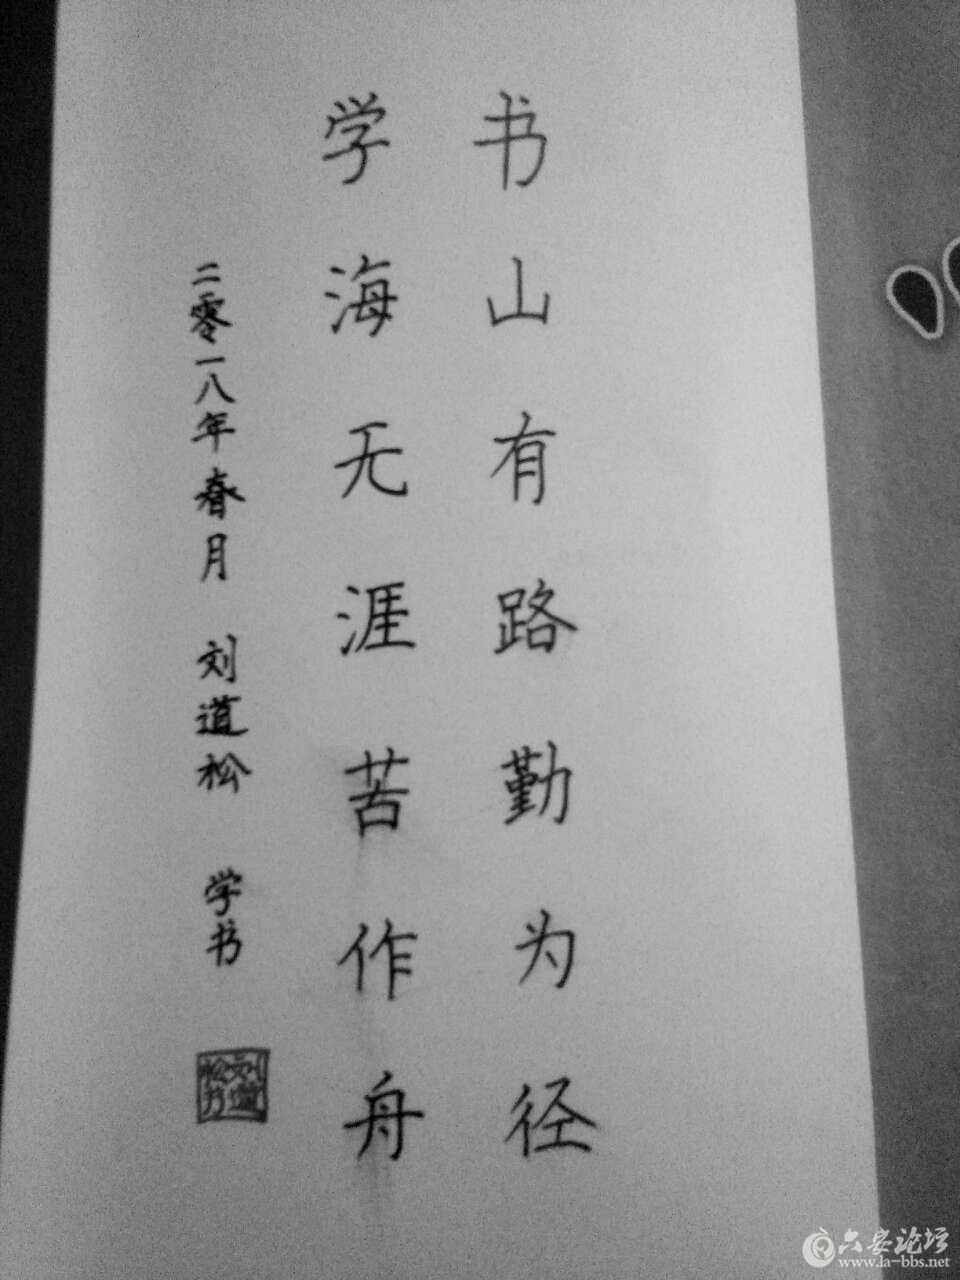 书山有路勤为径
学海无涯苦作舟
二零一八年春月 刘道松 学书
刘道松
六安论坛
www.la-bbs.net